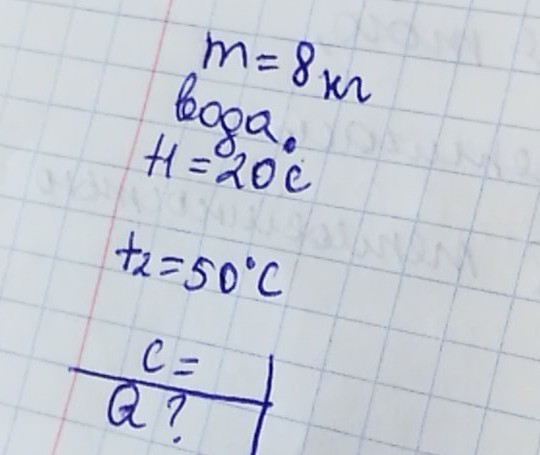 m = 8 кг
вода.
t1 = 20°C
t2 = 50°C
c =
Q ?